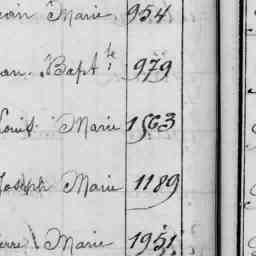 Marie 954
Bapt.te 979
Louis Marie 1563
Joseph Marie 1189
Marie 1951